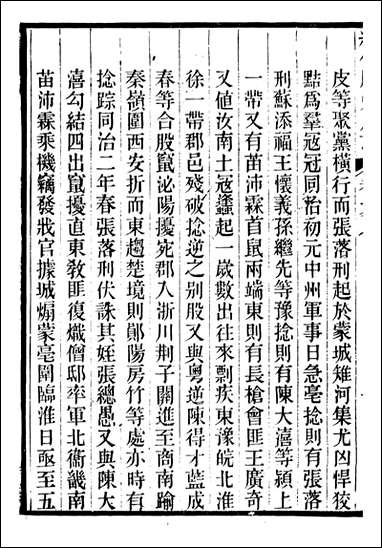 皮等聚黨橫行而張落刑起於蒙城雉河集尤凶悍狡
黠爲羣寇冠同治初元中州軍事日急亳捻則有張落
刑蘇添福王懷義孫繼先等豫捻則有陳大濇等潁上
一帶又有苗沛霖首鼠兩端東則有長槍會匪王廣奇
又値汝南土寇蠭起一歲數出往來剽疾東豫皖北淮
徐一帶郡邑殘破捻逆之别股又與粤逆陳得才藍成
春等合股竄泌陽擾宛郡入淅川荆子關進至商南踰
秦嶺圍西安折而東趨楚境則鄖陽房竹等處亦時有
捻踪同治二年春張落刑伏誅其姪張總愚又與陳大
濇勾結四出竄擾直東敎匪復熾僧邸率軍北衞畿南
苗沛霖乘機竊發戕官據城煽蒙亳圍臨淮日亟至五